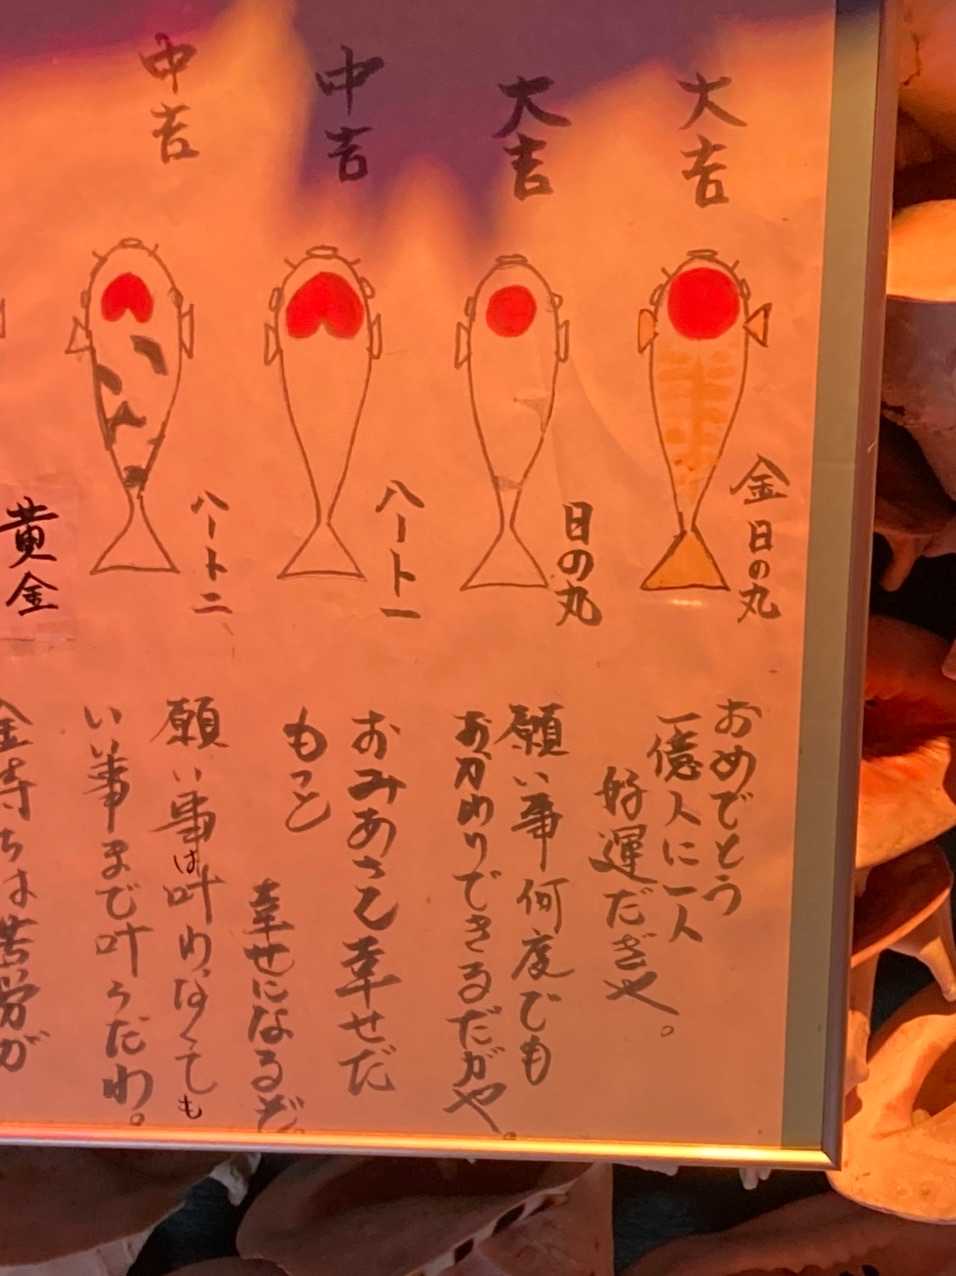 大吉
金日の丸
おめでとう
一億人に一人
好運だぎゃ。
大吉
日の丸
願い事何度でも
お刀わりできるだがや。
中吉
ハート一
おみあさん幸せだ
もっと
幸せになるだ。
中吉
ハート二
願い事は叶わなくても
いい事まで叶うだわ。
黄金
金持ちは苦労が